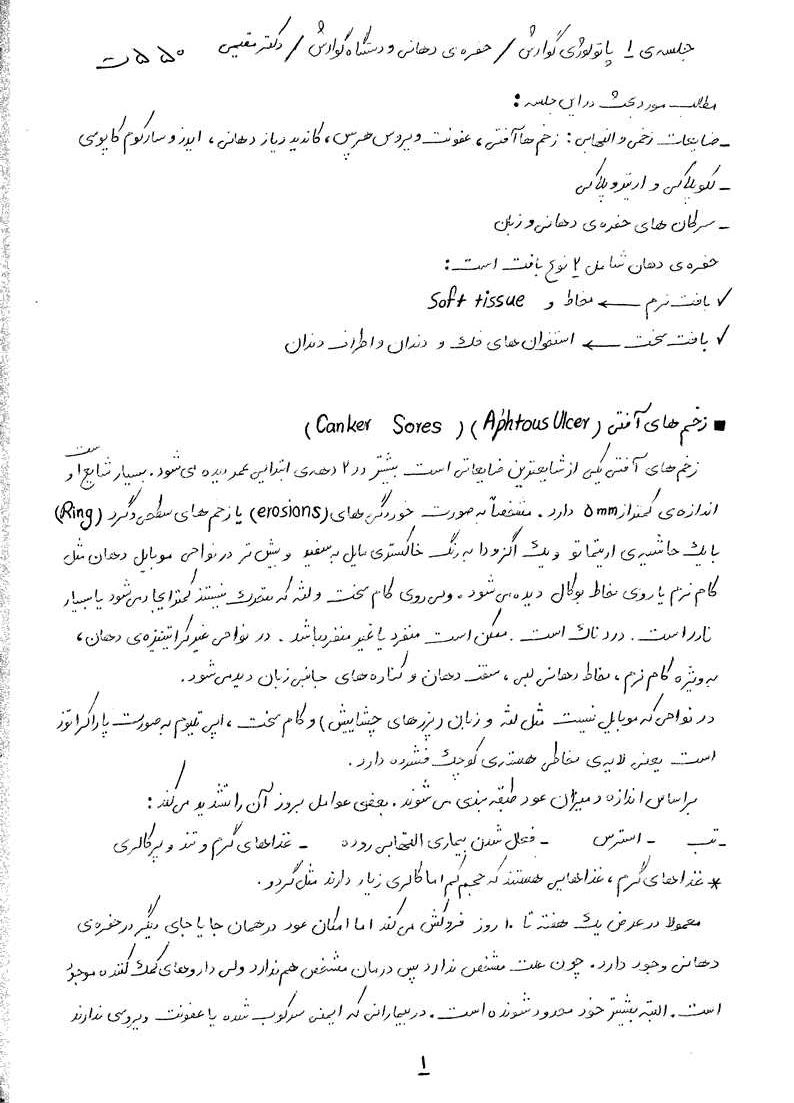 جلسه ی ۱ پاتولوژی گوارش / حفره ی دهانی و دستگاه گوارش / دکتر مقیمی ۵۵۰ ت
مطالب مورد بحث در این جلسه :
ـ ضایعات زخمی و التهابی : زخم ها آفتی ، عفونت ویروس هرپس ، کاندیدیاز دهانی ، ایدز و سارکوم کاپوسی
ـ لکوپلاکی و اریتروپلاکی
ـ سرطان های حفره ی دهانی و زبان
حفره ی دهان شامل ۲ نوع بافت است :
✓ بافت نرم ← مخاط و Soft tissue
✓ بافت سخت ← استخوان های فک و دندان و اطراف دندان
■ زخم های آفتی (Aphtous Ulcer) (Canker Sores)
زخم های آفتی یکی از شایعترین ضایعاتی است بیشتر در ۲ دهه ی ابتدایی عمر دیده می شود . بسیار شایع است و
اندازه ی کمتر از ۵mm دارد . مشخصاً به صورت خوردگی های (erosions) یا زخم های سطحی و گرد (Ring)
با یک حاشیه ی اریتماتو و یک اگزودا به رنگ خاکستری مایل به سفید و بیش تر در نواحی موبایل دهان مثل
کام نرم یا روی مخاط بوکال دیده می شود . ولی روی کام سخت و لثه که متحرک نیستند کمتر ایجاد می شود یا بسیار
نادر است . دردناک است . ممکن است منفرد یا غیر منفرد باشد . در نواحی غیر کراتینیزه ی دهان ،
به ویژه کام نرم ، مخاط دهانی لبی ، سقف دهان و کناره های جانبی زبان دیده می شود .
در نواحی که موبایل نیست مثل لثه و زبان (پرزهای چشایش) و کام سخت ، اپی تلیوم به صورت پاراکراتوز
است یعنی لایه ی مخاطی هسته ی کوچک فشرده دارد .
براساس اندازه و میزان عود طبقه بندی می شوند . بعضی عوامل بروز آن را تشدید می کند :
ـ تب ـ استرس ـ فعال شدن بیماری التهابی روده ـ غذاهای گرم و تند و پرکالری
* غذاهای گرم ، غذاهایی هستند که حجم کم اما کالری زیاد دارند مثل گردو .
معمولا در عرض یک هفته تا ۱۰ روز فروکش می کند اما امکان عود در همان جا یا جای دیگر در حفره ی
دهانی وجود دارد . چون علت مشخص ندارد پس درمان مشخص هم ندارد ولی داروهای کمک کننده موجود
است . البته بیشتر خود محدود شونده است . در بیمارانی که ایمنی سرکوب شده یا عفونت ویروسی ندارند
۱